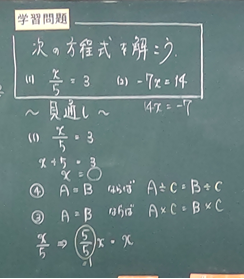 学習問題
次の方程式を解こう.
(1) x/5 = 3 (2) -7x = 14
14x = -7
～見通し～
(1) x/5 = 3
x ÷ 5 = 3
x = ○
④ A = B ならば A ÷ C = B ÷ C
③ A = B ならば A × C = B × C
x/5 ⇒ 5/5 x = x
=1